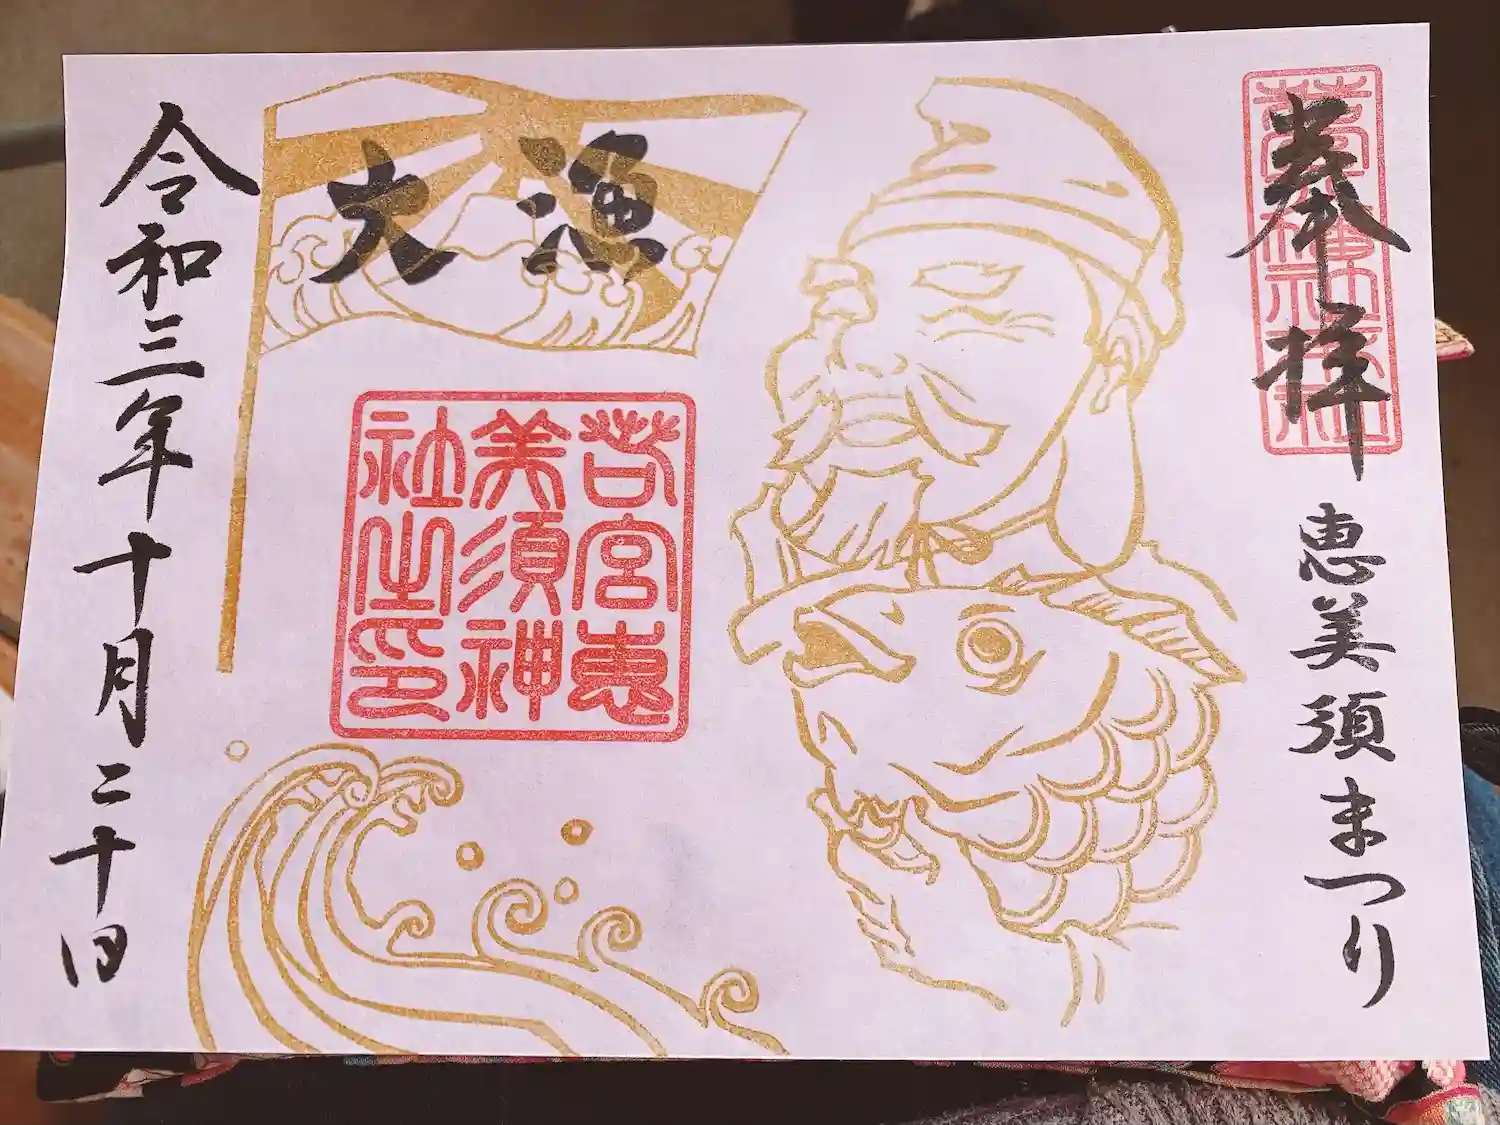 奉拝
恵美須まつり
大漁
若宮恵
美須神
社之印
令和三年十月二十日